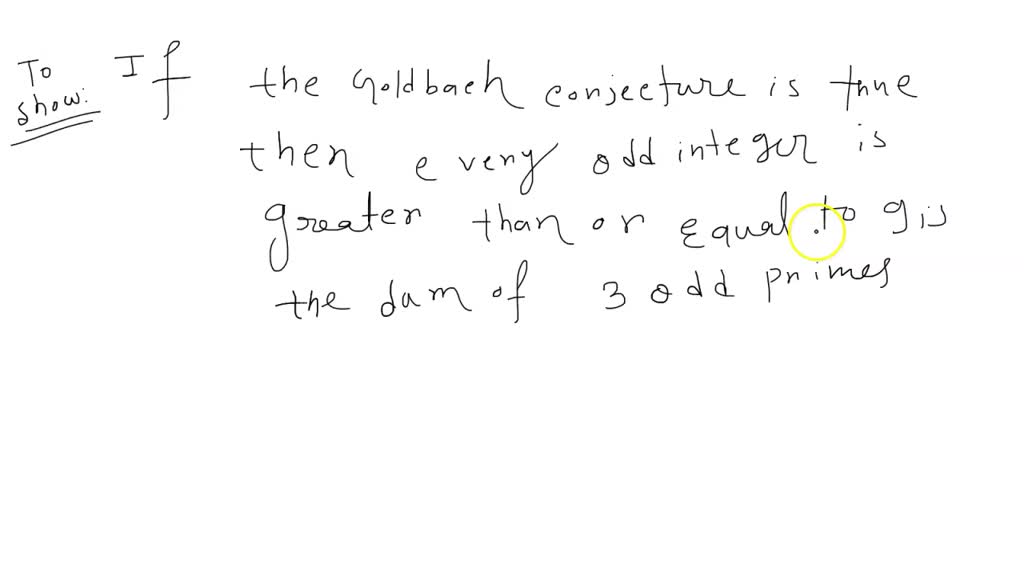 To show: If the Goldbach conjecture is true
then every odd integer is
greater than or equal to 9 is
the sum of 3 odd primes